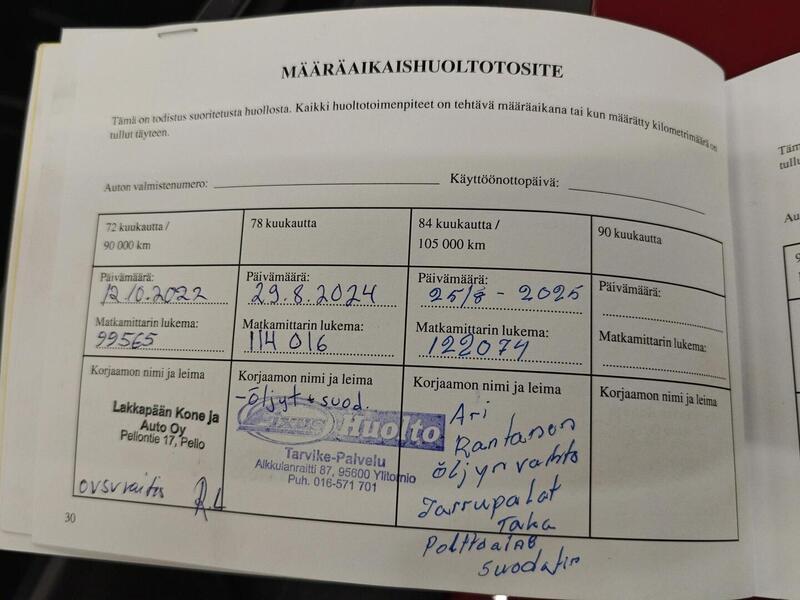 MÄÄRÄAIKAISHUOLTOTOSITE
Tämä on todistus suoritetusta huollosta. Kaikki huoltotoimenpiteet on tehtävä määräaikana tai kun määrätty kilometrimäärä on
tullut täyteen.
Auton valmistenumero:
Käyttöönottopäivä:
72 kuukautta /
90 000 km
Päivämäärä:
12.10.2022
Matkamittarin lukema:
99565
Korjaamon nimi ja leima
Lakkapään Kone ja
Auto Oy
Pellontie 17, Pello
R.L
78 kuukautta
Päivämäärä:
29.8.2024
Matkamittarin lukema:
114 016
Korjaamon nimi ja leima
-öljyt + suod.
Fixus Huolto
Tarvike-Palvelu
Alkkulanraitti 87, 95600 Ylitornio
Puh. 016-571 701
84 kuukautta /
105 000 km
Päivämäärä:
25/8 - 2025
Matkamittarin lukema:
122074
Korjaamon nimi ja leima
Ari
Rantanen
öljyn vaihto
Jarrupalat
Taka
Polttoaine
suodatin
90 kuukautta
Päivämäärä:
Matkamittarin lukema:
Korjaamon nimi ja leima
30